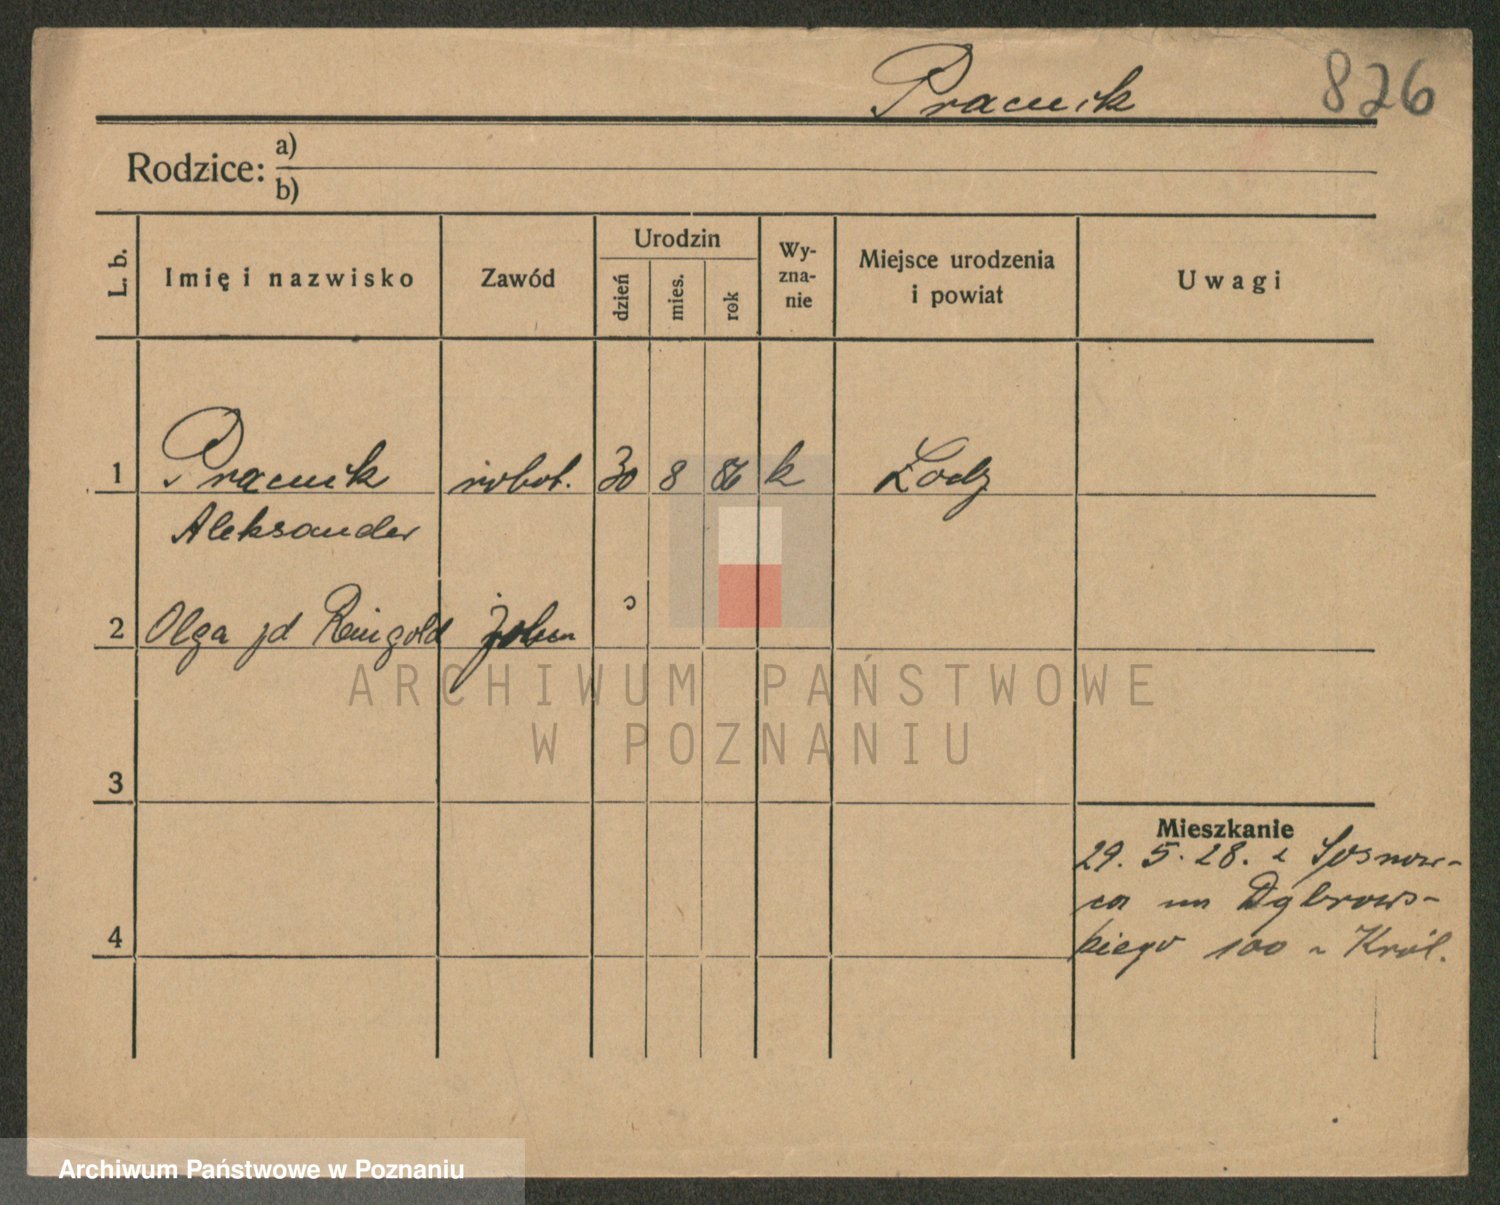 Pracnik
826
Rodzice: a)
b)
L. b.
Imię i nazwisko
Zawód
Urodzin
dzień
mies.
rok
Wy-
zna-
nie
Miejsce urodzenia
i powiat
Uwagi
1 Pracnik robot. 30 8 86 k Łodz
Aleksander
2 Olga jd Reingold
3
4
Mieszkanie
29. 5. 28. z Sosnow-
ca Dąbrows-
kiego 100 Król.
ARCHIWUM PAŃSTWOWE
W POZNANIU
Archiwum Państwowe w Poznaniu